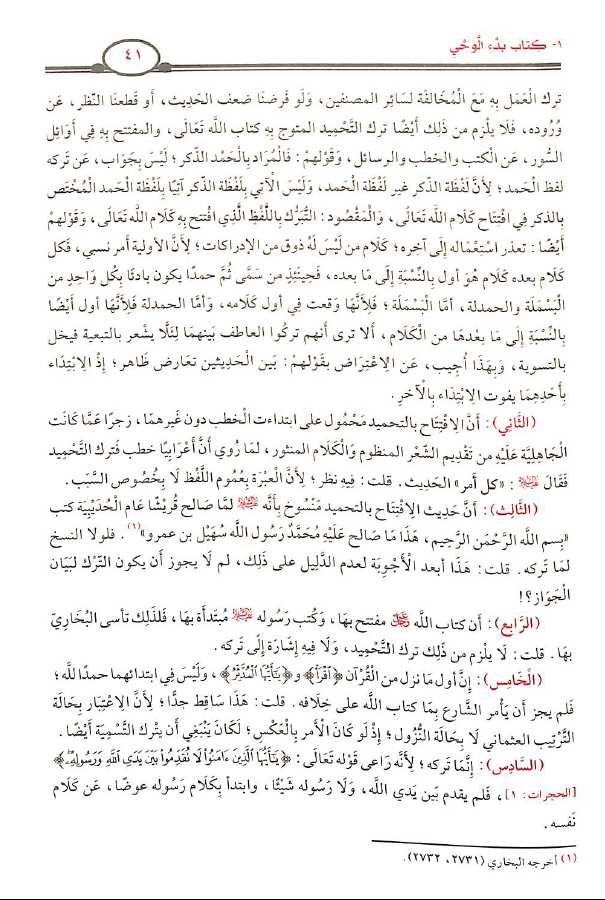 ١- كتاب بدْء الْوحْي
٤١
ترك الْعَمَل بِهِ مَعَ الْمُخَالفَة لسَائِر المصنفين، وَلَو فَرضنَا ضعف الحَدِيث، أَو قَطعنَا النّظر، عَن
وُرُوده، فَلَا يلْزم من ذَلِك أَيْضًا ترك التَّحْمِيد المتوج بِهِ كتاب الله تَعَالَى، والمفتتح بِهِ فِي أَوَائِل
السُّور، عَن الْكتب والخطب والرسائل، وَقَوْلهمْ: فَالْمُرَاد بِالْحَمْد الذّكر؛ لَيْسَ بِجَوَاب، عَن تَركه
لفظ الْحَمد؛ لِأَنَّ لَفْظَة الذّكر غير لَفْظَة الْحَمد، وَلَيْسَ الْآتِي بِلَفْظَة الذّكر آتِيَا بِلَفْظَة الْحَمد الْمُخْتَص
بِالذكر فِي افْتِتَاح كَلَام الله تَعَالَى، وَالْمَقْصُود: التَّبَرُّك بِاللَّفْظِ الَّذِي افْتتح بِهِ كَلَام الله تَعَالَى، وَقَوْلهمْ
أَيْضًا: تعذر اسْتَعْمَاله إِلَى آخِره؛ كَلَام من لَيْسَ لَهُ ذوق من الإدراكات؛ لِأَنَّ الأولية أَمر نسبي، فَكل
كَلَام بعده كَلَام هُوَ أول بِالنِّسْبَةِ إِلَى مَا بعده، فَحِينَئِذٍ من سَمَّى ثُمَّ حمدًا يكون بادئًا بِكُل وَاحِد من
الْبَسْمَلَة والحمدلة، أمَّا الْبَسْمَلَة؛ فَلِأَنَّهَا وَقعت فِي أول كَلَامه، وَأمَّا الحمدلة فَلِأَنَّهَا أول أَيْضًا
بِالنِّسْبَةِ إِلَى مَا بعْدهَا من الْكَلَام، أَلا ترى أَنهم تركُوا العاطف بَينهمَا لِئَلَّا يشْعر بالتبعية فيخل
بالتسوية، وَبِهَذَا أُجِيب، عَن الِاعْتِرَاض بقَوْلهمْ: بَين الْحَدِيثين تعَارض ظَاهر؛ إِذْ الِابْتِدَاء
بِأَحَدِهِمَا يفوت الِابْتِدَاء بِالْآخرِ.
(الثَّانِي): أَنَّ الِافْتِتَاح بالتحميد مَحْمُول على ابتداءت الْخطب دون غَيرهمَا، زجرًا عَمَّا كَانَت
الْجَاهِلِيَّة عَلَيْهِ من تَقْدِيم الشّعْر المنظوم وَالْكَلَام المنثور، لمَا رُوِي أَنَّ أَعْرَابِيَا خطب فَترك التَّحْمِيد
فَقَالَ ﷺ: «كل أَمر» الحَدِيث. قلت: فِيهِ نظر؛ لِأَنَّ الْعبْرَة بِعُمُوم اللَّفْظ لَا بِخُصُوص السَّبَب.
(الثَّالِث): أَنَّ حَدِيث الِافْتِتَاح بالتحميد مَنْسُوخ بِأَنَّهُ ﷺ لمَّا صَالح قُريْشًا عَام الْحُدَيْبِيَة كتب
«بِسم الله الرَّحْمَن الرَّحِيم، هَذَا مَا صَالح عَلَيْهِ مُحَمَّدٌ رَسُول الله سُهَيْل بن عمرو»(١). فلولا النسخ
لمَا تَركه. قلت: هَذَا أبعد الْأَجْوِبَة لعدم الدَّلِيل على ذَلِك، لم لَا يجوز أَن يكون التّرْك لبَيَان
الْجَوَاز؟!
(الرَّابِع): أَن كتاب الله ﷻ مفتتح بهَا، وَكُتب رَسُوله ﷺ مُبتَدأَة بهَا، فَلذَلِك تأسى البُخَارِيّ
بهَا. قلت: لَا يلْزم من ذَلِك ترك التَّحْمِيد، وَلَا فِيهِ إِشَارَة إِلَى تَركه.
(الْخَامِس): إِنَّ أول مَا نزل من الْقُرْآن ﴿ٱقْرَأْ﴾ و﴿يَٰٓأَيُّهَا ٱلْمُدَّثِّرُ﴾، وَلَيْسَ فِي ابتدائهما حمدًا لله؛
فَلم يجز أَن يَأْمر الشَّارِع بِمَا كتاب الله على خِلَافه. قلت: هَذَا سَاقِط جدًا؛ لِأَنَّ الِاعْتِبَار بِحَالَة
التَّرْتِيب العثماني لَا بِحَالَة النُّزُول؛ إِذْ لَو كَانَ الْأَمر بِالْعَكْسِ؛ لَكَانَ يَنْبَغِي أَن يتْرك التَّسْمِيَة أَيْضًا.
(السَّادِس): إِنَّمَا تَركه؛ لِأَنَّهُ رَاعى قَوْله تَعَالَى: ﴿يَٰٓأَيُّهَا ٱلَّذِينَ ءَامَنُوا۟ لَا تُقَدِّمُوا۟ بَيْنَ يَدَىِ ٱللَّهِ وَرَسُولِهِۦ﴾
[الحجرات: ١]، فَلم يقدم بَين يَدي الله، وَلَا رَسُوله شَيْئًا، وابتدأ بِكَلَام رَسُوله عوضًا، عَن كَلَام
نَفسه.
(١) أخرجه البخاري (٢٧٣١، ٢٧٣٢).